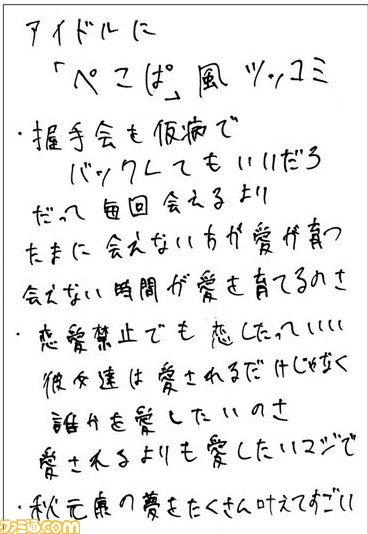 アイドルに
「ぺこぱ」風ツッコミ
・握手会を仮病で
バックレてもいいだろ
だって毎回会えるより
たまに会えない方が愛が育つ
会えない時間が愛を育てるのさ
・恋愛禁止でも恋したっていい
彼女達は愛されるだけじゃなく
誰かを愛したいのさ
愛されるよりも愛したいマジで
・秋元康の夢をたくさん叶えてすごい
ファミ通.com